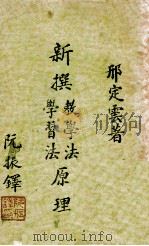 邢定雲著
新撰教學法
學習法原理
阮振鐸